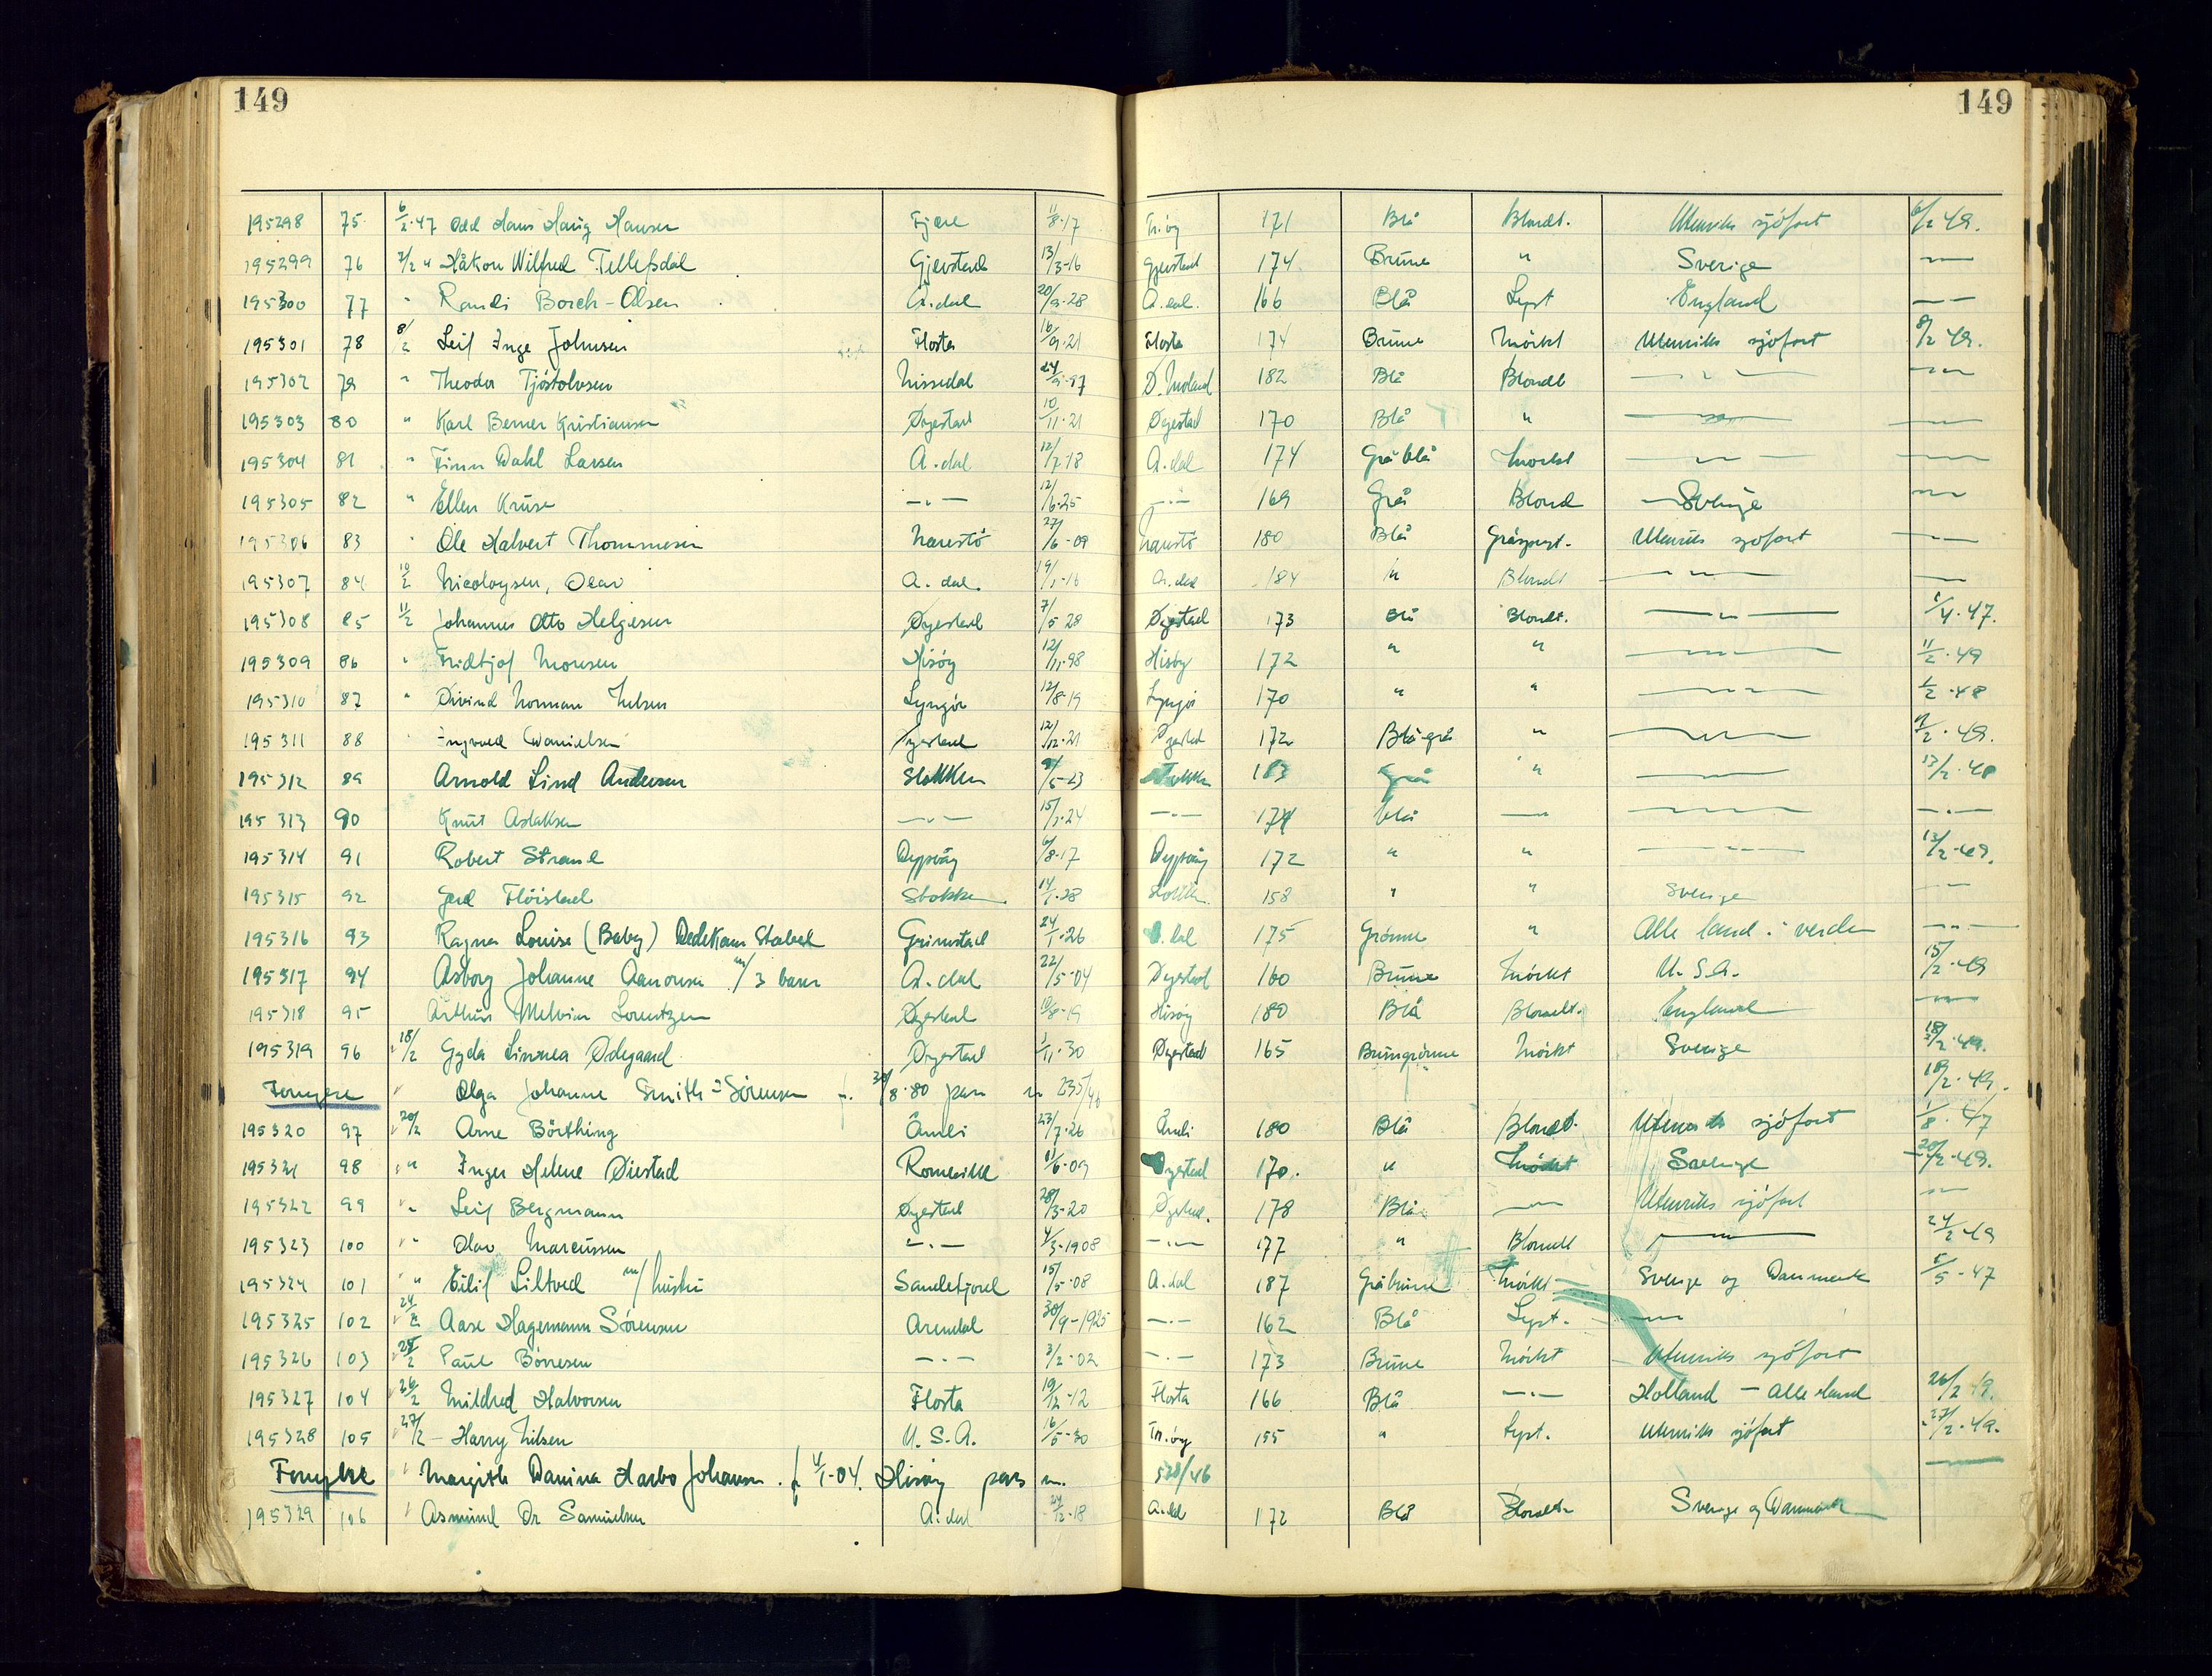 149 149
195298 75 6/2.47 Odd Hans Haug Hansen Fjære 11/8.17 Tr.øy 171 Blå Blondt. Utenriks sjöfart 6/2 49.
195299 76 7/2 " Håkon Wilfred Tellefsdal Gjerstad 13/3-16 Gjerstad 174 Brune " Sverige —"—
195300 77 " Randi Borch-Olsen A.dal 20/9.28 A.dal. 166 Blå Lyst England — —
195301 78 8/2 Leif Inge Johnsen Flosta 16/9.21 Flosta 174 Brune Mörkt Utenriks sjöfart 8/2 49.
195302 79 " Theodor Tjöstolvsen Nissedal 24/9.97 Ö.Moland 182 Blå Blondt — " — —"—
195303 80 " Karl Berner Kristiansen Øyestad 10/11.21 Øyestad 170 Blå " —"— —"—
195304 81 " Finn Dahl Larsen A.dal 12/7.18 A.dal 174 Gråblå Mörkt — " — —"—
195305 82 " Ellen Kruse —"— 12/6.25 —"— 169 Grå Blond Sverige —"—
195306 83 " Ole Halvert Thommesen Narestö 27/6-09 Narestö 180 Blå Gråspregt. Utenriks sjöfart —"—
195307 84 10/2 Nicolaysen, Olav A.dal. 19/1-16 A.dal 184 " Blondt —"— —
195308 85 11/2 Johannes Otto Helgesen Øyestad 7/5 28 Øyestad 173 Blå Blondt. —"— 1/4.47.
195309 86 " Fridtjof Monsen Hisöy 12/11.98 Hisöy 172 " " —"— 11/2.49
195310 87 " Øivind Norman Nilsen Lyngör 12/8.19 Lyngör 170 " " —"— 1/2.48
195311 88 " Ingvald Danielsen Øyestad 12/12.21 Øyestad 172 Blå-grå " —"— 12/2.49.
195312 89 Arnold Lind Andersen Stokken 9/5-23 Stokken 183 Grå " —"— 13/2.48
195313 90 Knut Aslaksen —"— 15/1.24 —"— 174 blå — —"— —"—
195314 91 Robert Strand Dypvåg 6/8.17 Dypvåg 172 " " —"— 13/2.49.
195315 92 Gerd Flöistad Stokken 14/1.28 Stokken 158 " " Sverige —
195316 93 Ragna Louise (Baby) Dedekam Stabel Grimstad 24/1.26 A.dal 175 Grönne " Alle land i verden —"—
195317 94 Asborg Johanne Aanonsen m/3 barn A.dal 22/5-04 Øyestad 160 Brune Mörkt U.S.A. 15/2.49
195318 95 Arthur Melvin Lorentzen Øyestad 10/8-19 Hisöy 180 Blå Blondt. England —"—
195319 96 18/2 Gyda Linnea Ødegaard Øyestad 1/11.30 Øyestad 165 Brungrönne Mörkt Sverige 18/2.49.
Fornyelse " Olga Johanne Smith-Sörensen f. 30/8.80 pass nr 235/46 18/2.49.
195320 97 20/2 Arne Börthing Åmli 23/7.26 Åmli 180 Blå Blondt. Utenriks sjöfart 1/8.47
195321 98 " Inger Helene Øiestad Romerike 11/6.09 Øyestad 170. " Mörkt Sverige 20/2.49.
195322 99 " Leif Bergmann Øyestad 28/3-20 Øyestad. 178 Blå —"— Utenriks sjöfart —"—
195323 100 " Olav Marcussen —"— 4/3-1908 —"— 177 " Blondt —"— 24/2.49
195324 101 " Eilif Liltved m/hustru Sandefjord 15/5.08 A.dal 187 Gråbrune Mörkt Sverige og Danmark 5/5-47
195325 102 24/2 Aase Hagemann Sörensen Arendal 30/9-1925 —"— 162 Blå Lyst. —"—
195326 103 25/2 Paul Börresen —"— 3/2-02 —"— 173 Brune Mörkt Utenriks sjöfart
195327 104 26/2 Mildred Halvorsen Flosta 19/12-12 Flosta 166 Blå —"— Holland — Alle land 26/2 49.
195328 105 27/2 Harry Nilsen U.S.A. 16/5-30 Tr.öy 155 " Lyst. Utenriks sjöfart 27/2.49.
Fornyelse " Margith Danina Aarbo Johansen. f 4/1-04. Hisöy pass nr. 528/46 —
195329 106 " Asmund Dr Samuelsen A.dal 24/2.18 A.dal 172 Blå Blondt Sverige og Danmark